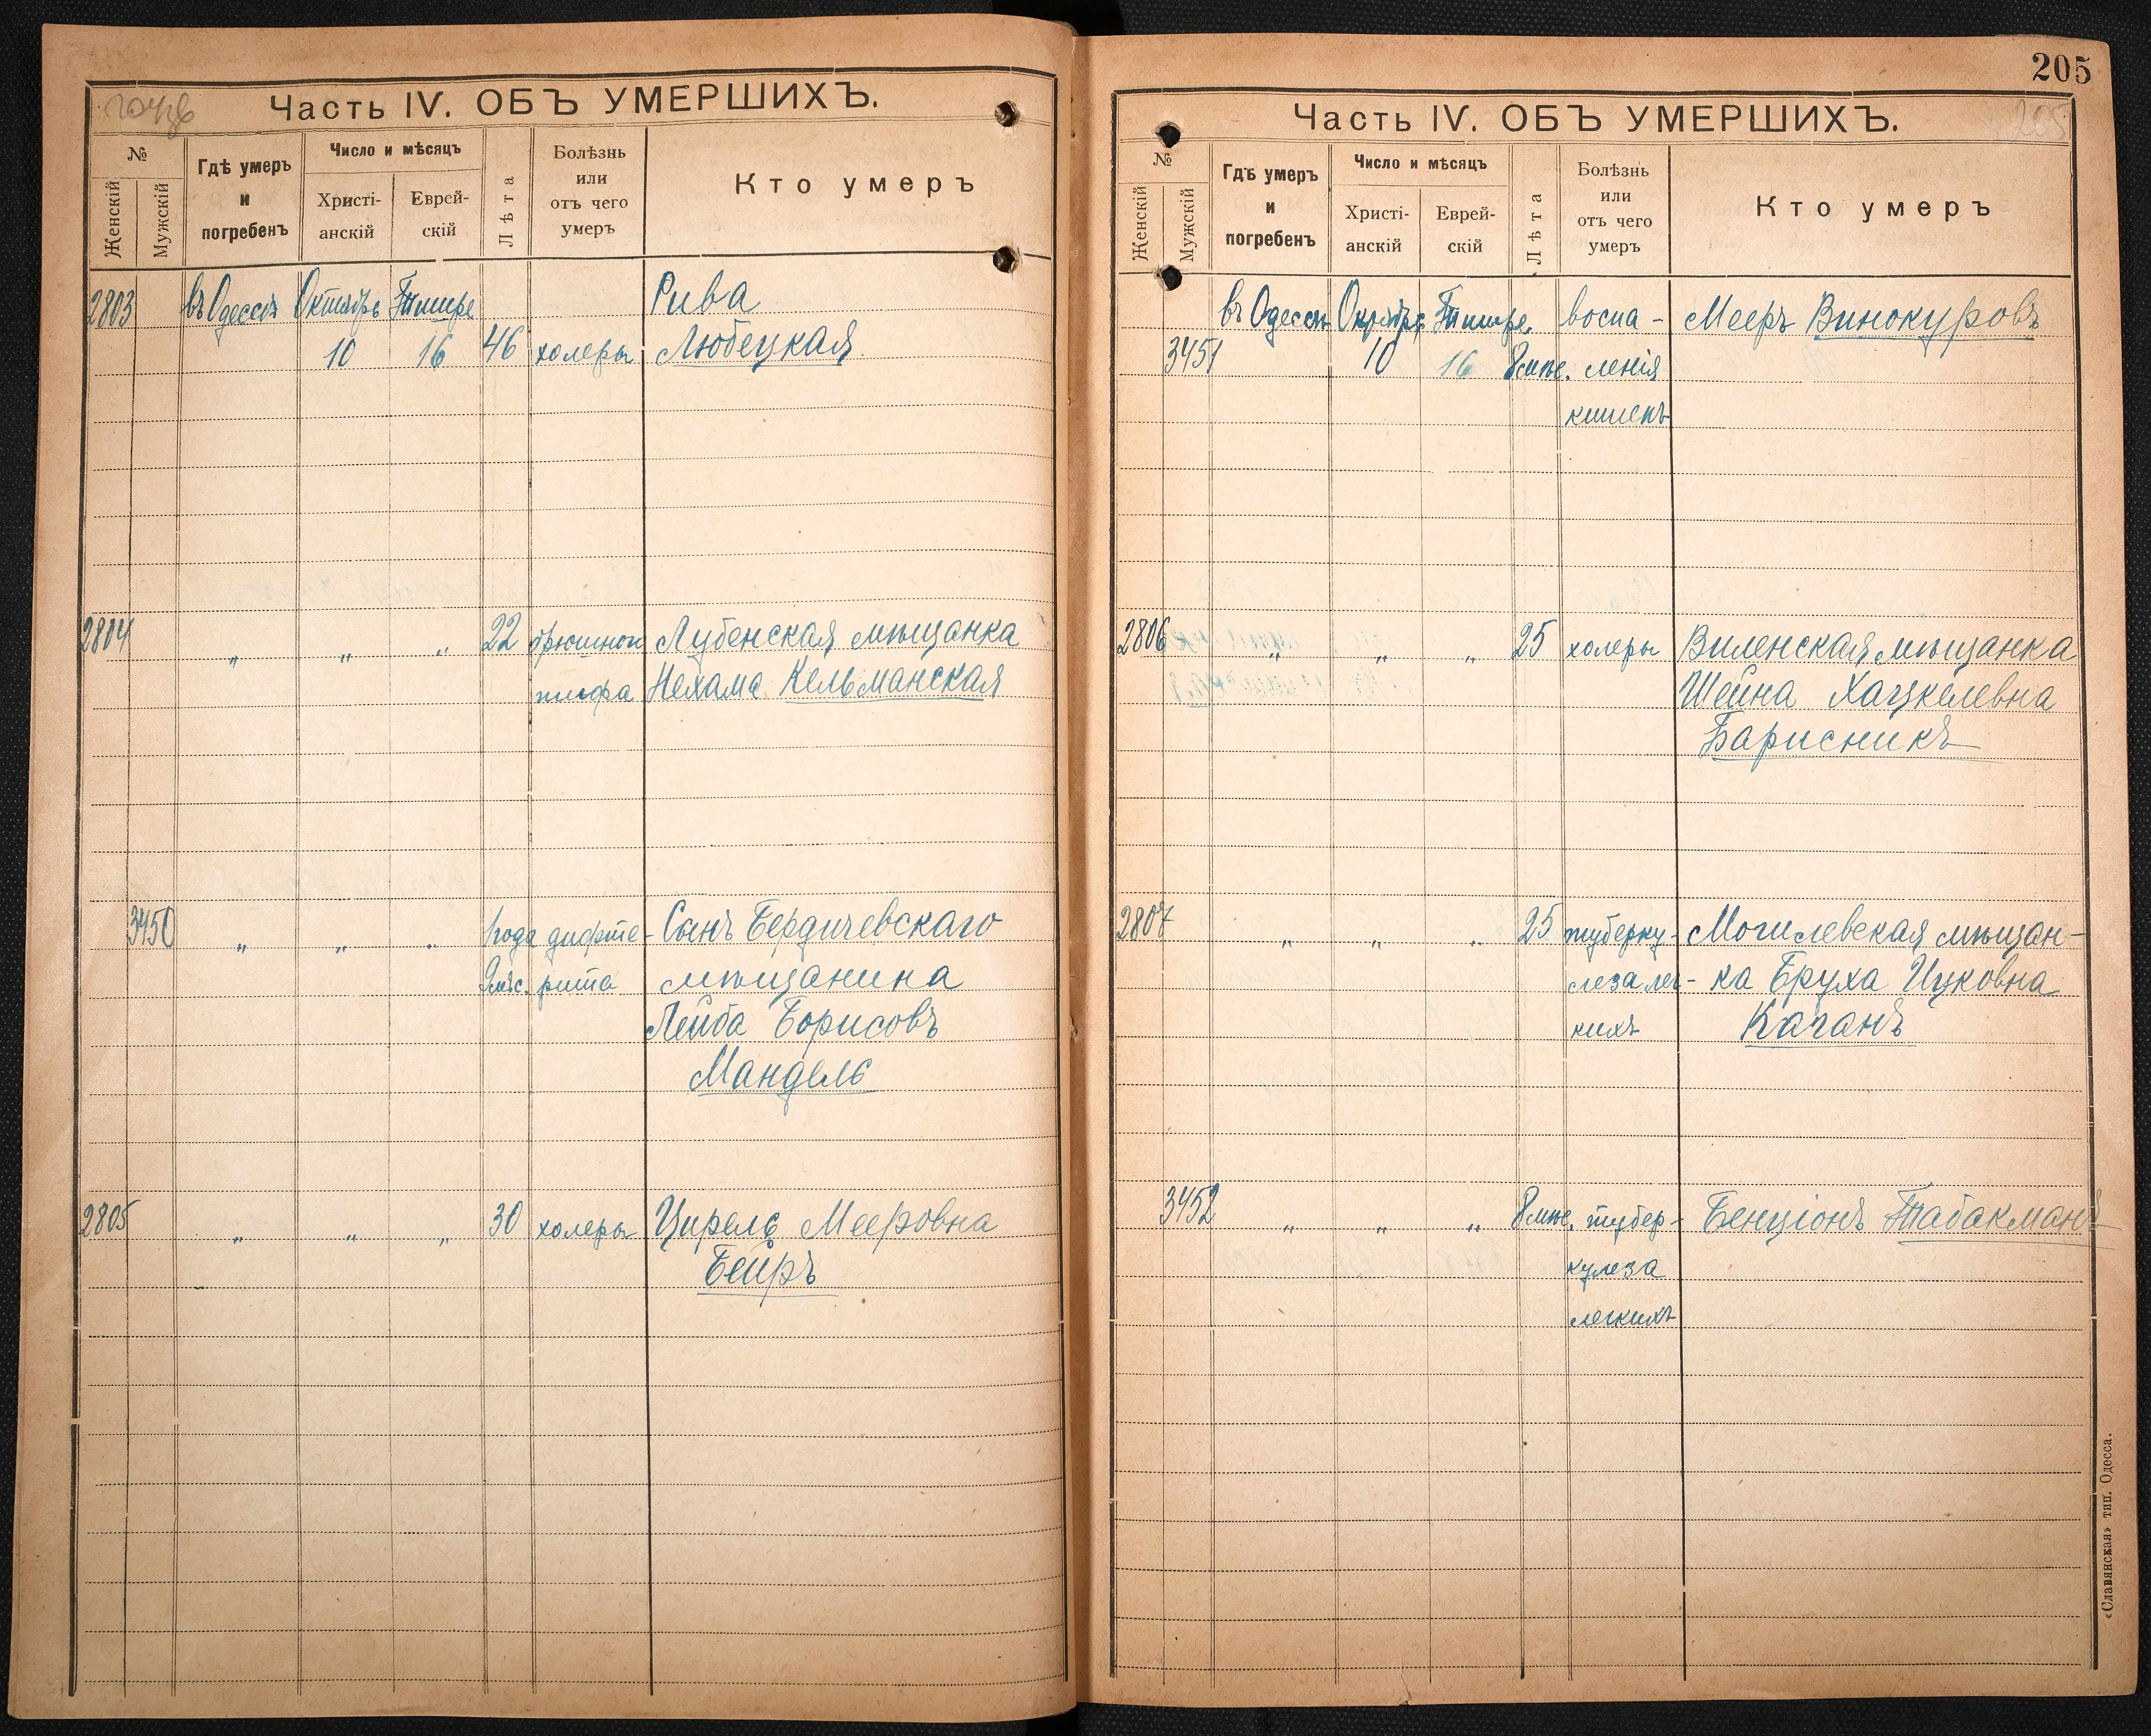 Часть IV. ОБЪ УМЕРШИХЪ.
№
Женскій
Мужскій
Гдѣ умеръ
и
погребенъ
Число и мѣсяцъ
Христі-
анскій
Еврей-
скій
Лѣта
Болѣзнь
или
отъ чего
умеръ
Кто умеръ
2803 въ Одессѣ Октябрь Тишре Рива
10 16 46 холеры Любецкая
2804 „ „ „ 22 брюшного Лубенская мѣщанка
тифа Нехама Кельманская
3450 „ „ „ 1 года дифте- Сынъ Бердичевскаго
9 мѣс. рита мѣщанина
Лейба Борисовъ
Мандель
2805 „ „ „ 30 холеры Цирель Мееровна
Бейръ
205
Часть IV. ОБЪ УМЕРШИХЪ.
205
№
Женскій
Мужскій
Гдѣ умеръ
и
погребенъ
Число и мѣсяцъ
Христі-
анскій
Еврей-
скій
Лѣта
Болѣзнь
или
отъ чего
умеръ
Кто умеръ
въ Одессѣ Октябрь Тишре воспа- Мееръ Винокуровъ
3451 10 16 8 мѣс. ленія
кишекъ
2806 „ „ „ 25 холеры Виленская мѣщанка
Шейна Хацкелевна
Барисникъ
2807 „ „ „ 25 туберку- Могилевская мѣщан-
леза лег- ка Бруха Ицковна
кихъ Каганъ
3452 „ „ „ 8 мѣс. тубер- Бенціонъ Табакманъ
кулеза
легкихъ
«Славянская» тип. Одесса.